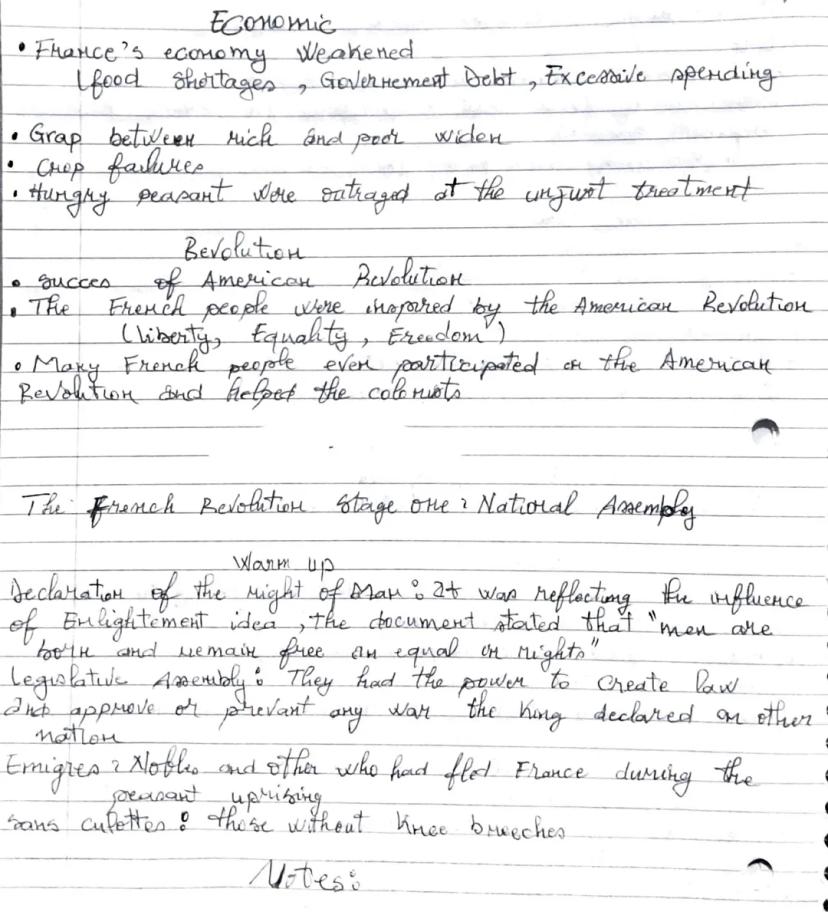 Economic
• France's economy Weakened
(food shortages, Governement Debt, Excessive spending
• Grap between rich and poor widen
• Crop failures
• Hungry peasant were outraged at the unjust treatment
Revolution
• succes of American Revolution
• The French people were inspired by the American Revolution
(liberty, Equality, Freedom)
• Many French people even participated in the American
Revolution and helped the colonists
The French Revolution stage one: National Assembly
Warm up
Declaration of the right of Man: It was reflecting the influence
of Enlightement idea, the document stated that "men are
born and remain free an equal in rights"
Legislative Assembly: They had the power to create law
and approve or prevant any war the King declared on other
nation
Emigres: Nobles and other who had fled France during the
peasant uprising
sans culottes: those without Knee breeches
Notes: